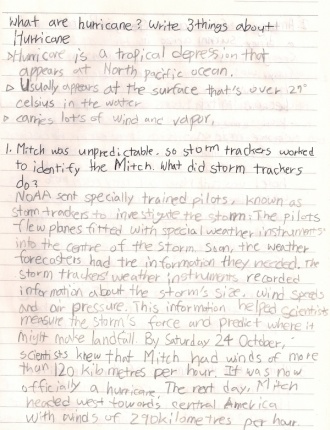 What are hurricane? Write 3 things about
Hurricane
▷ Hurricane is a tropical depression that
appears at North pacific ocean.
▷ Usually appears at the surface that's over 27°
celsius in the water
▷ carries lot's of wind and vapor.
1. Mitch was unpredictable. so storm trackers worked
to identify the Mitch. What did storm trackers
do?
NOAA sent specially trained pilots, known as
storm trackers to investigate the storm. The pilots
flew planes fitted with special weather instruments
into the centre of the storm. Soon, the weather
forecasters had the information they needed. The
storm trackers' weather instruments recorded
information about the storm's size, wind speeds
and air pressure. This information helped scientists
measure the storm's force and predict where it
might make landfall. By Saturday 24 October,
scientists knew that Mitch had winds of more
than 120 kilometres per hour. It was now
officially a hurricane. The next day, Mitch
headed west towards central America
with winds of 290 kilometres per hour